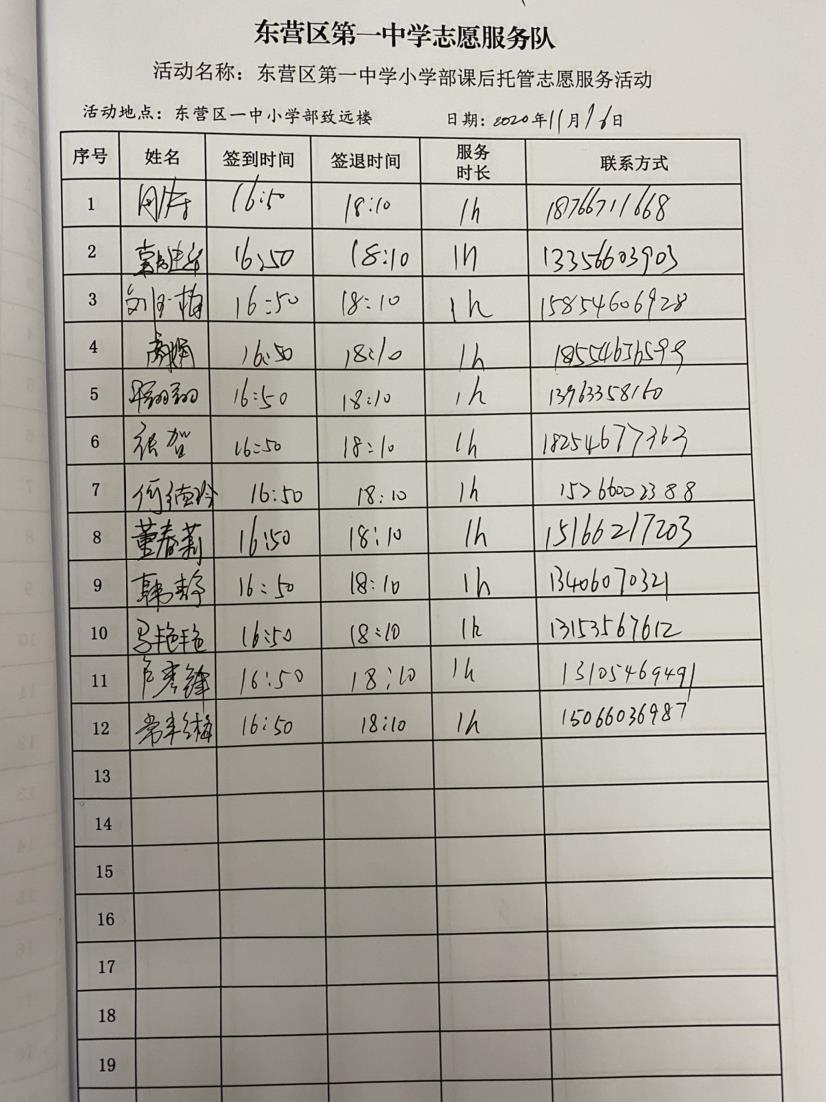 东营区第一中学志愿服务队
活动名称：东营区第一中学小学部课后托管志愿服务活动
活动地点：东营区一中小学部致远楼 日期：2020年11月16日
序号 姓名 签到时间 签退时间 服务时长 联系方式
1 周涛 16:50 18:10 1h 18766711668
2 16:50 18:10 1h 13356603903
3 16:50 18:10 1h 15854606928
4 16:50 18:10 1h 18554636599
5 翔翔 16:50 18:10 1h 13963358160
6 张贺 16:50 18:10 1h 18254677363
7 何德玲 16:50 18:10 1h 15266002388
8 董春莉 16:50 18:10 1h 15166217203
9 韩静 16:50 18:10 1h 13406070321
10 马艳艳 16:50 18:10 1h 13153567612
11 16:50 18:10 1h 13105469491
12 常丰梅 16:50 18:10 1h 15066036987
13
14
15
16
17
18
19